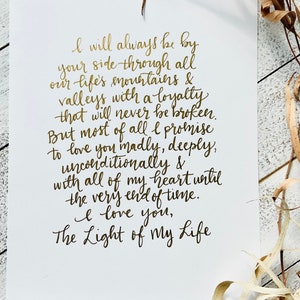 I will always be by
your side through all
our life's mountains &
valleys with a loyalty
that will never be broken.
But most of all I promise
to love you madly, deeply,
unconditionally &
with all of my heart until
the very end of time.
I love you,
The Light of My Life